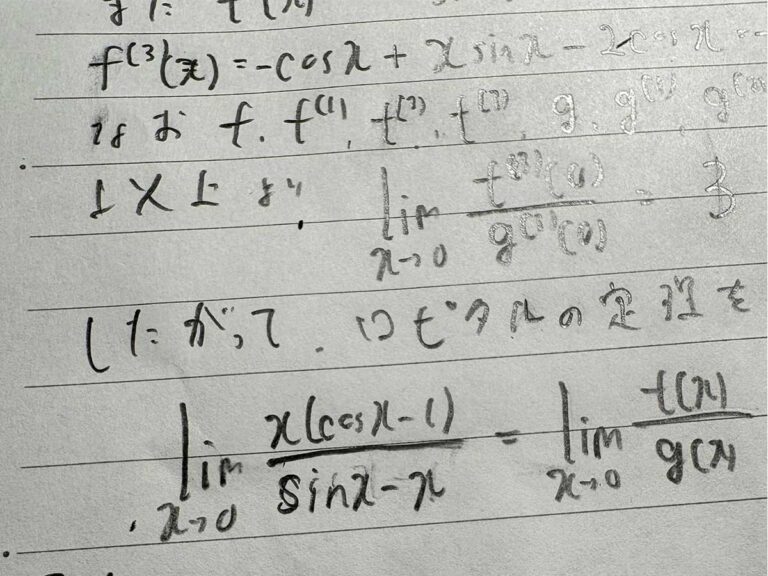 f(x)
f⁽³⁾(x) = -cosx + x sinx - 2cosx
なお f, f⁽¹⁾, f⁽²⁾, f⁽³⁾, g, g⁽¹⁾, g
以上より, lim_{x→0} f⁽³⁾(0)/g⁽³⁾(0) = 3
したがって, ロピタルの定理を
lim_{x→0} x(cosx-1)/(sinx-x) = lim_{x→0} f(x)/g(x